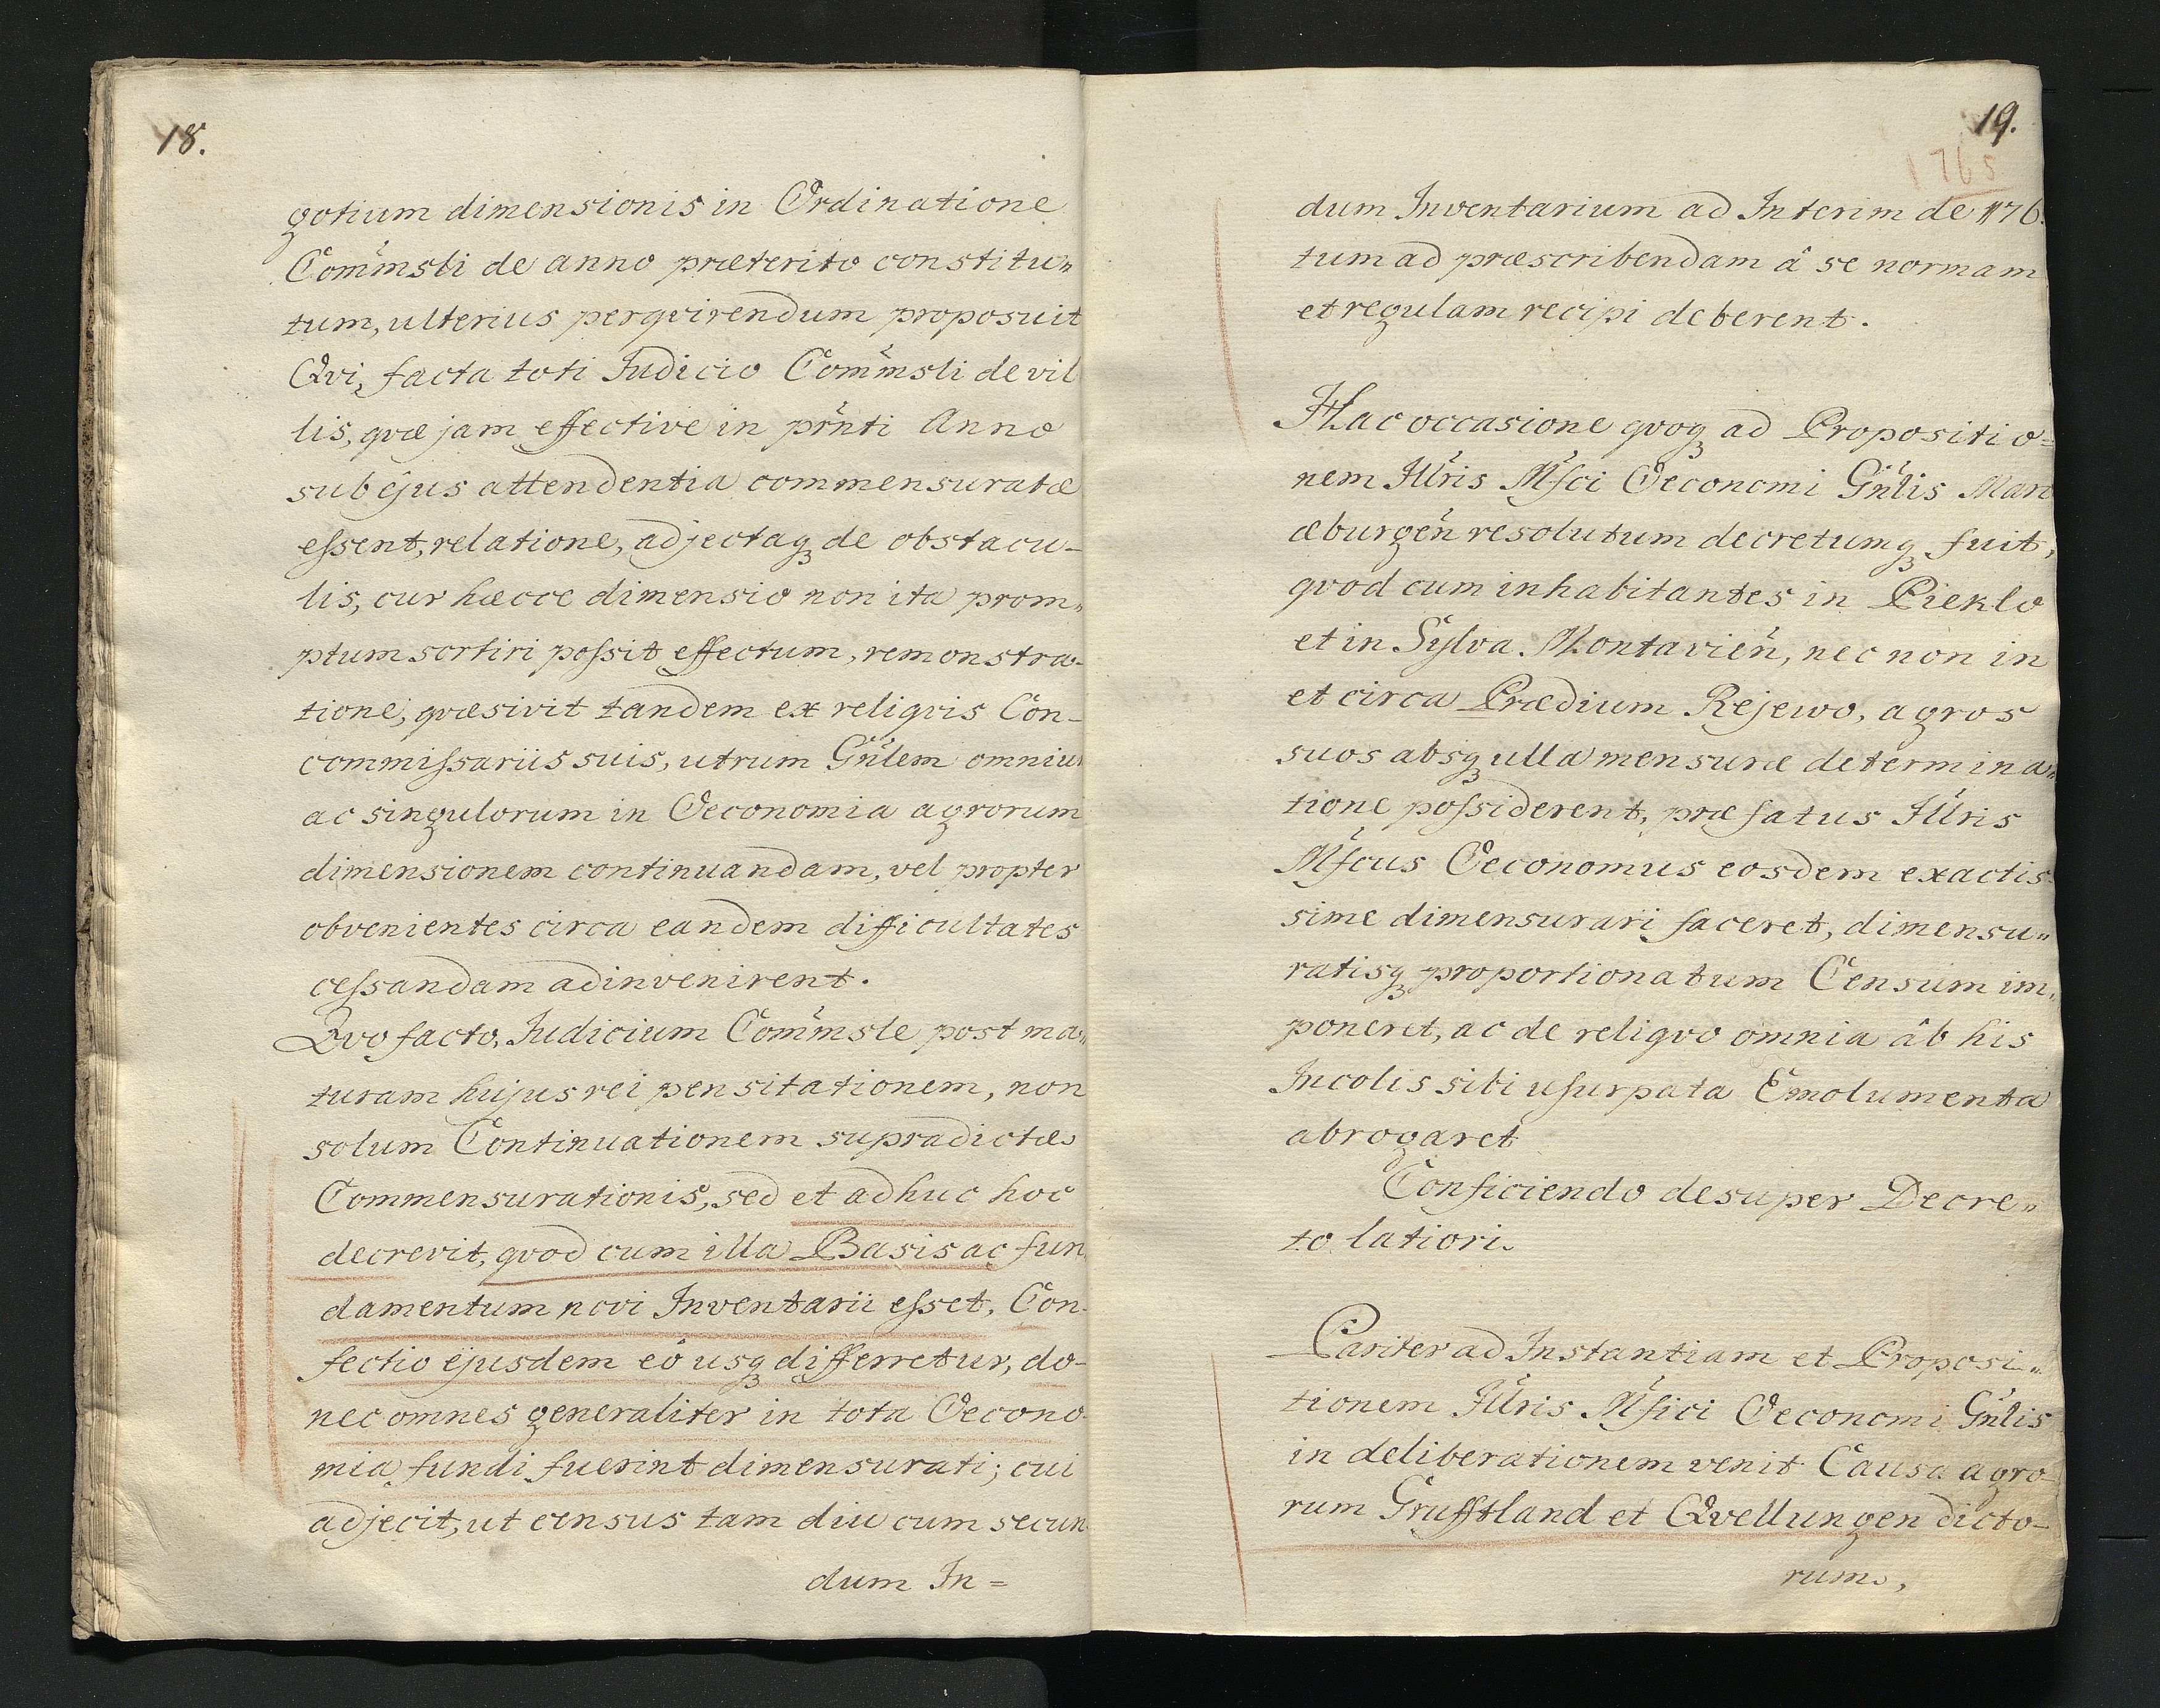 18.
gotium dimensionis in Ordinatione
Com̃msli de anno præterito constitu„
tum, ulterius perqvirendum proposuit
Qvi, facta toti Judicio Com̃msli de vil
lis, qvæ jam effective in prñti Anno
sub ejus attendentia commensuratæ
essent, relatione, adjectaqꝫ de obstacu-
lis, cur hæcce dimensio non ita prom„
ptum sortiri possit effectum, remonstra-
tione, qvæsivit tandem ex reliqvis Con-
commissariis suis, utrum Gñlem omniu
ac singulorum in Oeconomia agrorum
dimensionem continuandam, vel propter
obvenientes circa eandem difficultates
cessandam adinvenirent.
Qvo facto, Judicium Com̃msle post ma„
turam hujus rei pensitationem, non
solum Continuationem supradictæ
Commensurationis, sed et adhuc hoc
decrevit, qvod cum illa Basis ac fun
damentum novi Inventarii esset, Con-
fectio ejusdem eô usqꝫ differretur, do-
nec omnes generaliter in tota Oecono-
mia fundi fuerint dimensurati; cui
adjecit, ut census tam diu cum secun
dum In=
19.
1765
dum Inventarium ad Interim de 176
tum ad præscribendam â se normam
et regulam recipi deberent.
Hac occasione qvoqꝫ ad Propositio=
nem Illr̃is Mf̃ci Oeconomi Gñlis Mari
æburgeñ resolutum decretumqꝫ fuit,
qvod cum inhabitantes in Pieklo
et in Sylva Montavień, nec non in
et circa Prædium Rejewo, agros
suos absqꝫ ulla mensuræ determina„
tione possiderent, præfatus Illr̃is
Mf̃cus Oeconomus eosdem exactis
sime dimensurari faceret, dimensu„
ratisqꝫ proportionatum Censum im„
poneret, ac de reliqvo omnia âb his
Incolis sibi usurpata Emolumenta
abrogaret
Conficiendo desuper Decre„
to latiori.
Pariter ad Instantiam et Proposi„
tionem Illr̃is Mf̃ici Oeconomi Gñlis
in deliberationem venit Causa agro
rum Grufftland et Qvellungen dicto-
rum,